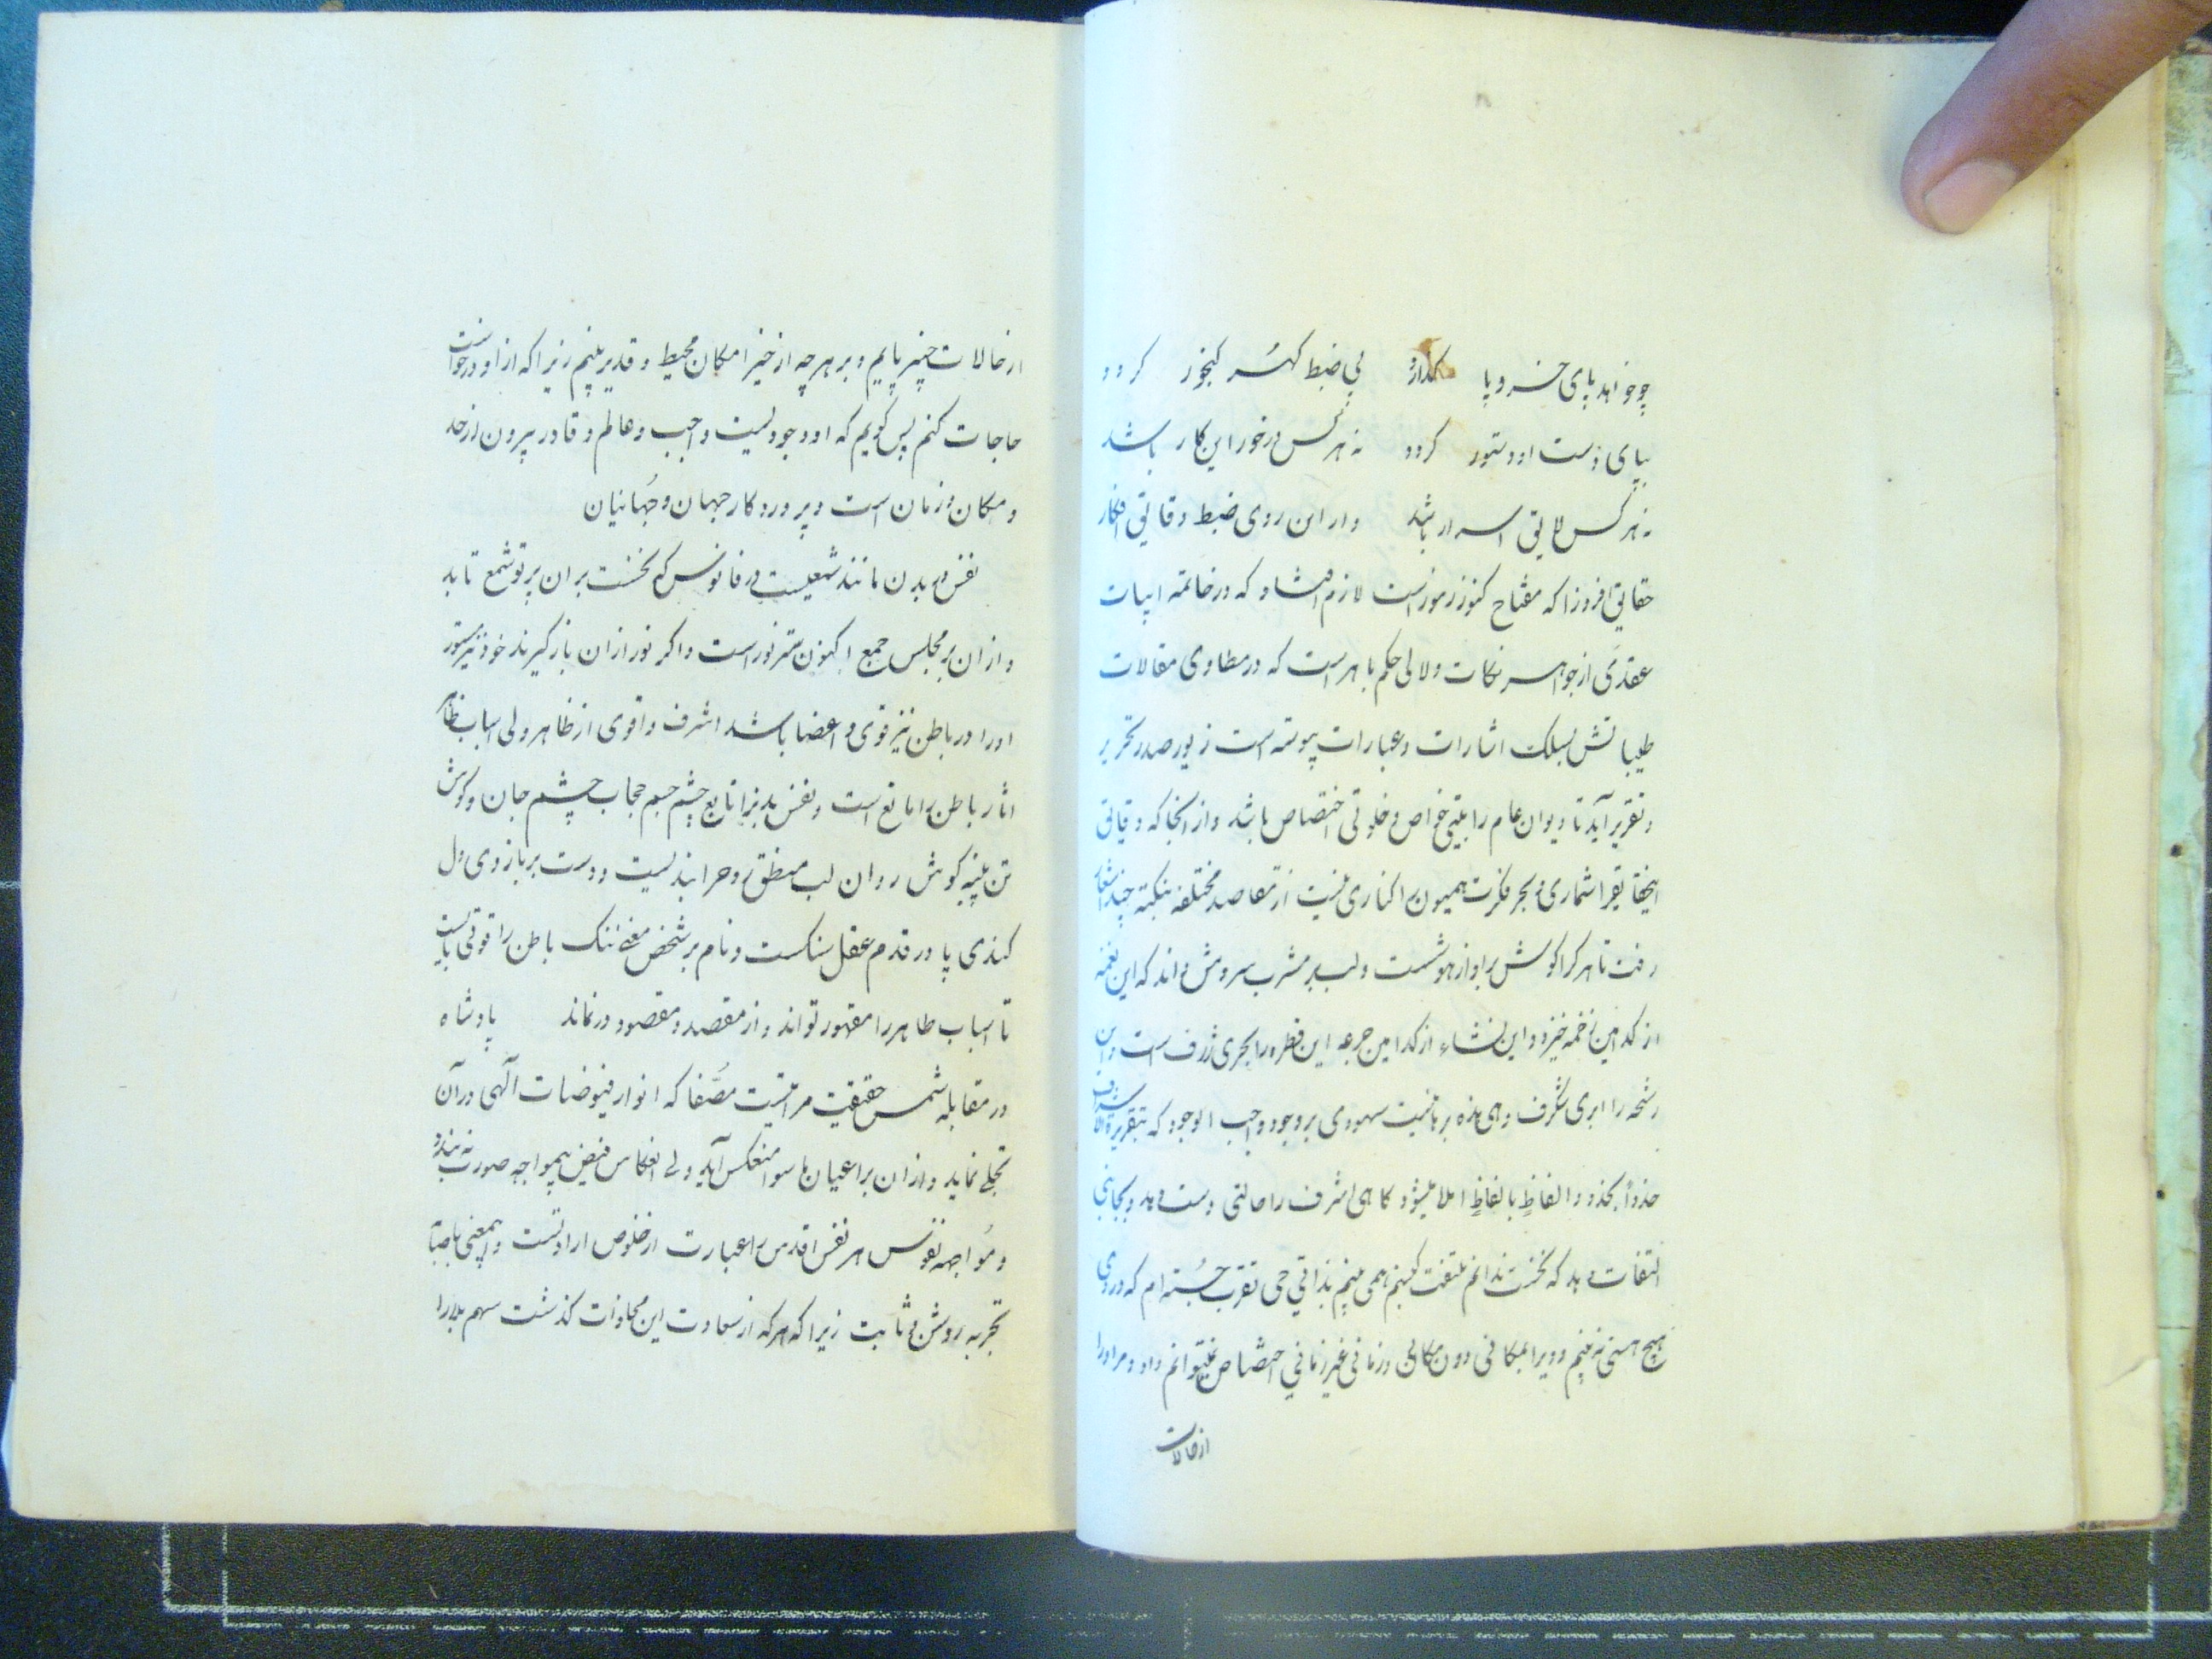 چو خواهد پای خسرو پا گذارد پی ضبط گهر گنجور گردد
بپای دست او دستور گردد نه هر کس درخور این کار باشد
نه هر کس لایق اسرار باشد و از این روی ضبط دقایق افکار
حقایق افروز را که مفتاح کنوز رموز است لازم افتاد که در خاتمه ابیات
عقدی از جواهر نکات و لالی حکم باهر است که در مطاوی مقالات
طیباتش بسلک اشارات و عبارات پیوسته است زیور صدر تحریر
و تقریر آید تا دیوان عام را بیتی خواص و خلوتی اختصاص باشد و از آنجا که دقایق
اینحقایق را شماری و بحر فکرت همیون را کناری نیست از مقاصد مختلفه بنکته چند اشعار
رفت تا هر کرا گوش بر آواز هوشست و لب بر مشرب سروش داند که این نغمه
از کدامین زخمه خیزد و این نشاء از کدامین جرعه این قطره را بحری ژرف است و این
رشحه را ابری شگرف و هی هذه برهانیست شهودی بر وجود واجب الوجود که بتقریر
حذواً بحذو و الفاظٍ بالفاظٍ املا میشود گاهی اشرف را حالتی دست دهد و بجانبی
التفات دهد که نخست ندانم ملتفت کیستم همی بینم بذاتی حی تقرب جسته ام که در وی
هیچ هستی نه بینم و ویرا بمکانی دون مکانی و زمانی غیر زمانی اختصاص نمیتوانم داد و مر او را
از حالات
از حالات خبیر یابم و بر هر چه از حیز امکان محیط و قدیر بینم زیرا که از او درخواست
حاجات کنم پس گویم که او وجودیست واجب و عالم و قادر بیرون از حد
و مکان و زمان است و پروردگار جهان و جهانیان
نفس در بدن مانند شمعیست در فانوس که نخست بر آن پرتو شمع تابد
و از آن بر مجلس جمع اکنون ستر نور است و اگر نور از آن بازگیرند خود نیز مستور
او را در باطن نیز قوی و اعضا باشد اشرف و اقوی از ظاهر ولی اسباب ظاهر
آثار باطن را مانع است و نفس بد نیز آنرا تابع چشم جسم حجاب چشم جان و گوش
تن پنبه گوش روان لب منطق روح را بندیست و دست بر بازوی دل
کندی پا در قدم عقل سنگست و نام بر شخص معنی ننگ باطن را قوتی بایست
تا اسباب ظاهر را مقهور تواند و از مقصد و مقصود درنماند پادشاه
در مقابله شمس حقیقت مرآتیست مصفا که انوار فیوضات الهی در آن
تجلی نماید و از آن بر اعیان ماسوا منعکس آید ولی انعکاس فیض بیمواجه صورت نه بندد
و مواجهه نفوس هر نفس اقدس را عبارت از خلوص ارادتست و اینمعنی باصابت
تجربه روشن و ثابت زیرا که هر که از سعادت این محاذات گذشت سهم بلا را